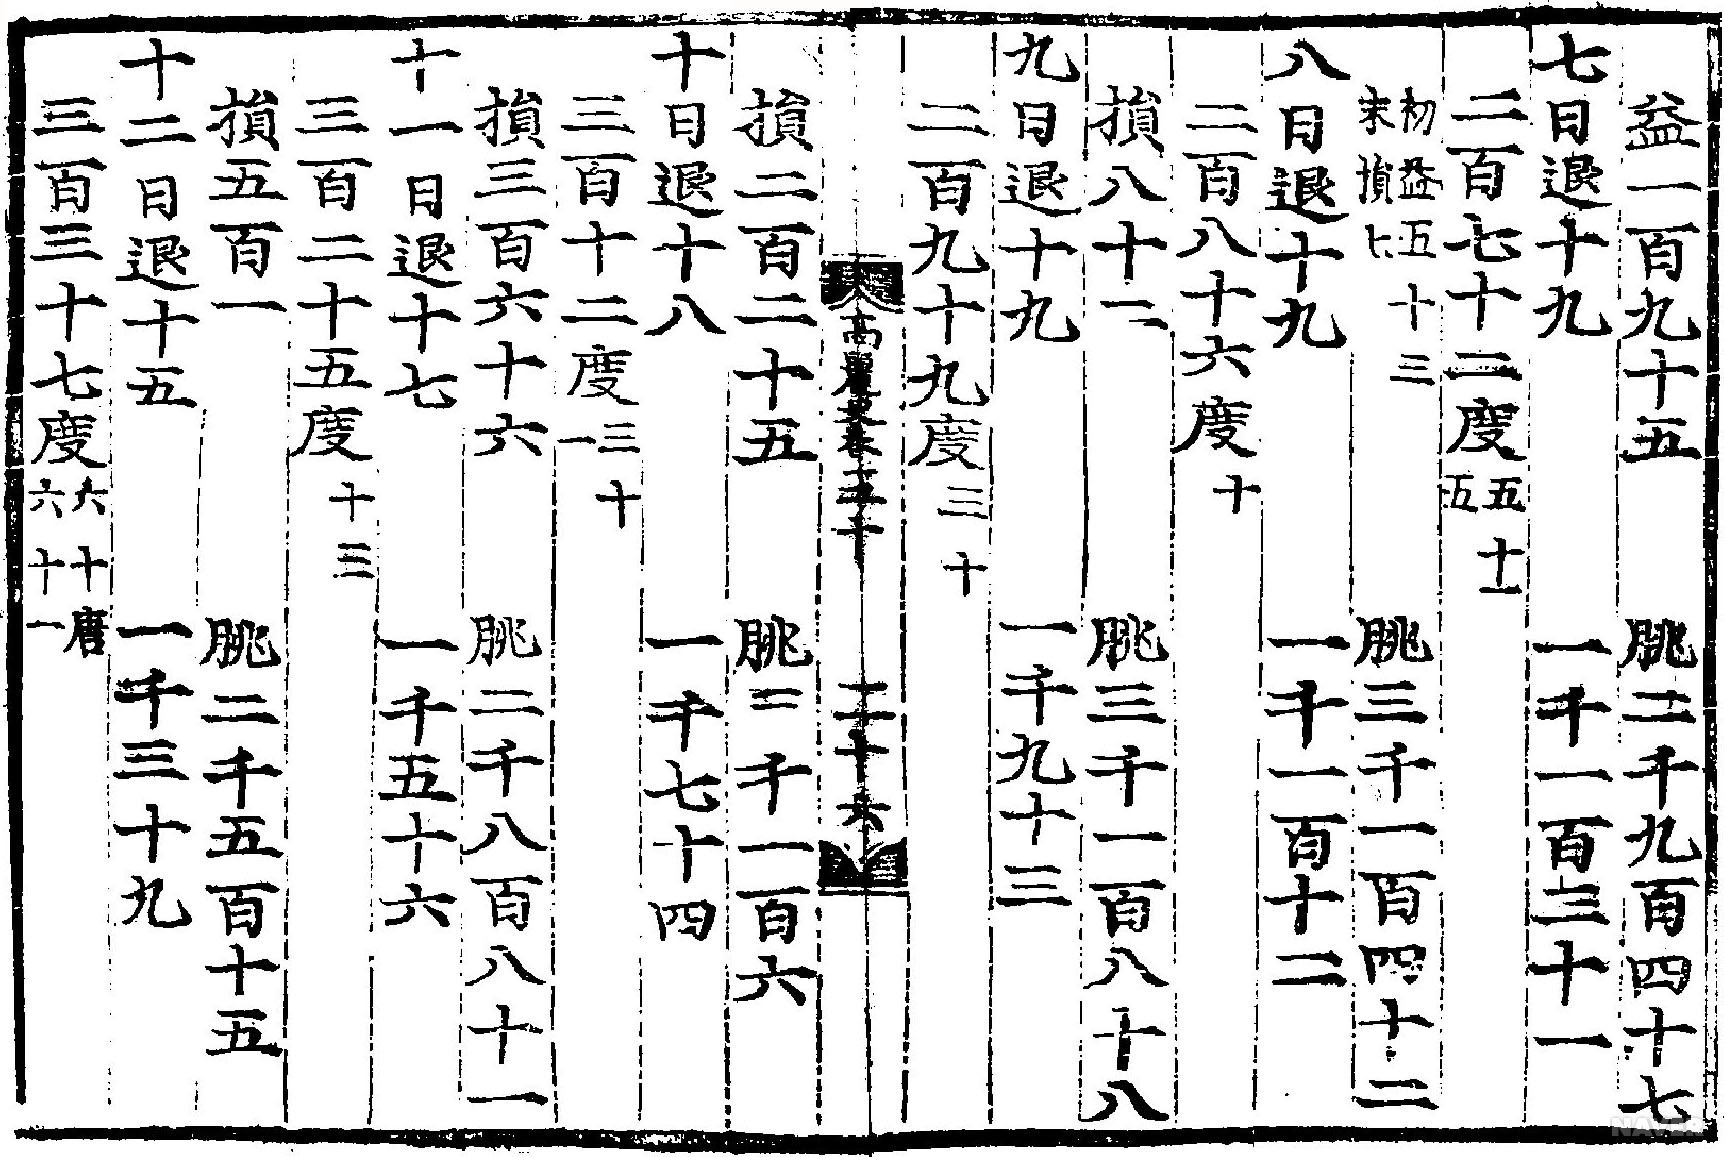 益一百九十五 朓二千九百四十七
七日退十九 一千一百三十一
二百七十二度五十一五
初益五十三末損七 朓三千一百四十二
八日退十九 一千一百十二
二百八十六度十
損八十二 朓三千一百八十八
九日退十九 一千九十三
二百九十九度三十
高麗史卷五十 二十六
損二百二十五 朓二千一百六
十日退十八 一千七十四
三百十二度三十一
損三百六十六 朓二千八百八十一
十一日退十七 一千五十六
三百二十五度十三
損五百一 朓二千五百十五
十二日退十五 一千三十九
三百三十七度六十唐六十一
NAVER